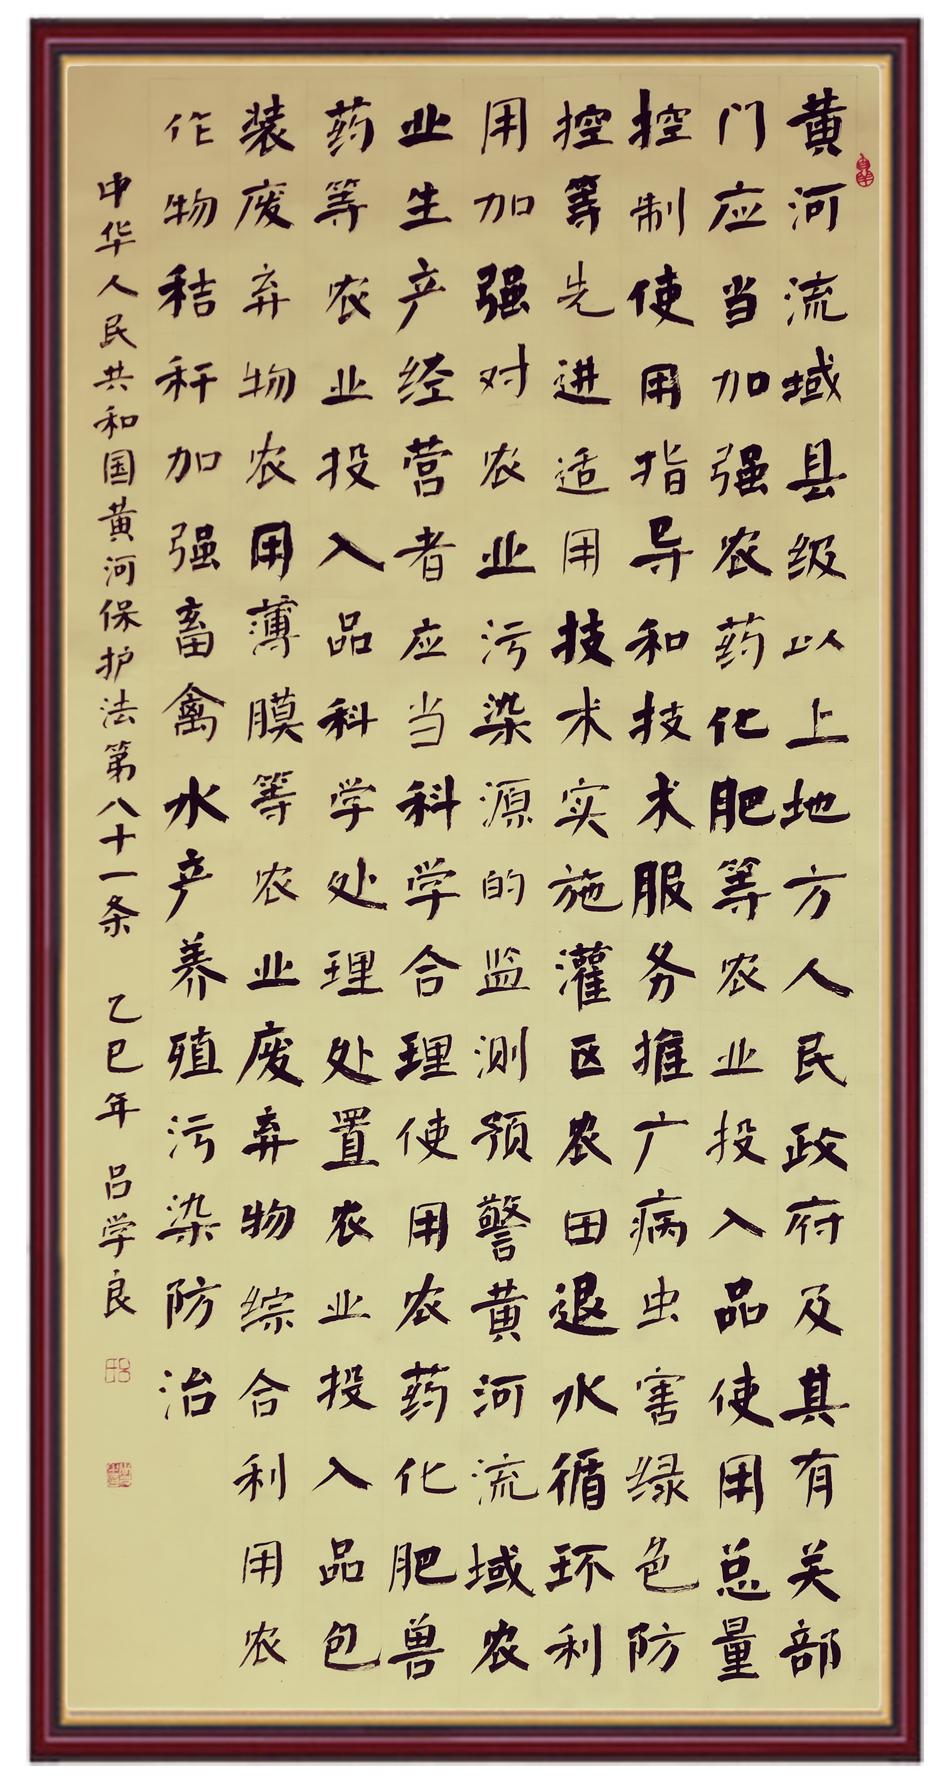 黄河流域县级以上地方人民政府及其有关部
门应当加强农药化肥等农业投入品使用总量
控制使用指导和技术服务推广病虫害绿色防
控等先进适用技术实施灌区农田退水循环利
用加强对农业污染源的监测预警黄河流域农
业生产经营者应当科学合理使用农药化肥兽
药等农业投入品科学处理处置农业投入品包
装废弃物农用薄膜等农业废弃物综合利用农
作物秸秆加强畜禽水产养殖污染防治
中华人民共和国黄河保护法第八十一条 乙巳年 吕学良